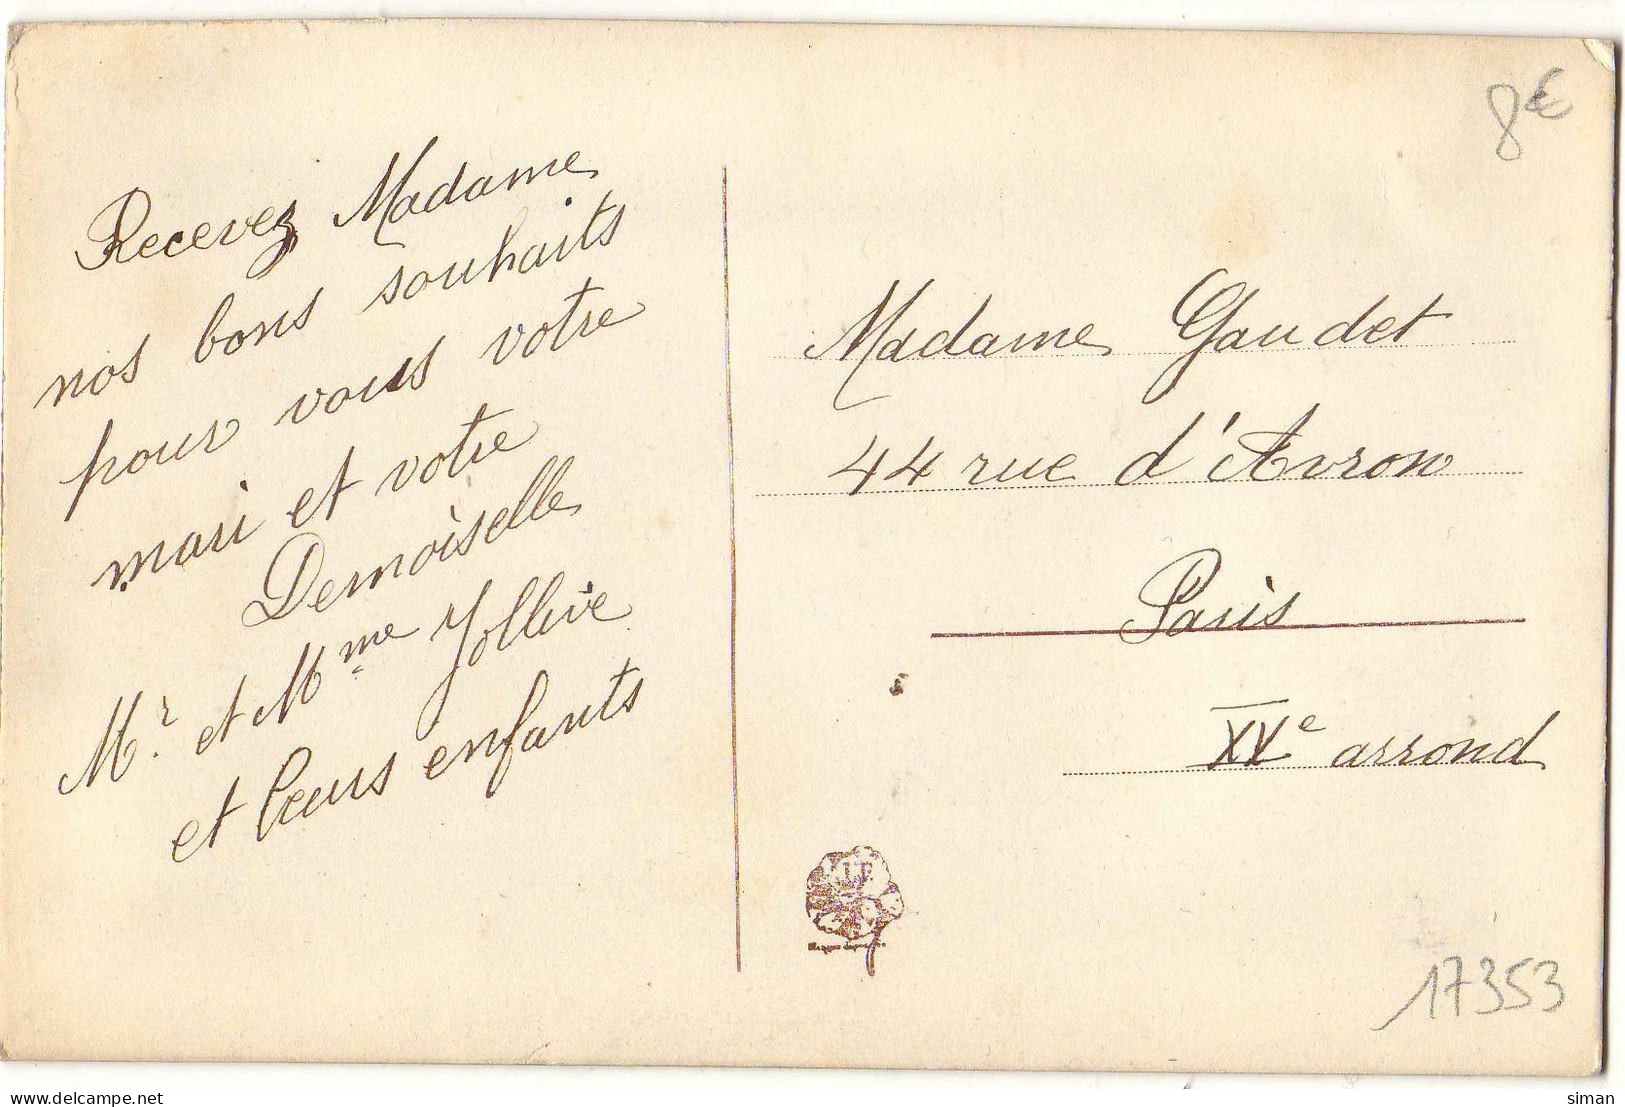 Recevez Madame
nos bons souhaits
pour vous votre
mari et votre
Demoiselle
Mr. et Mme Jollive
et leurs enfants
8€
Madame Gaudet
44 rue d'Avron
Paris
XVe arrond
17353
delcampe.net
siman